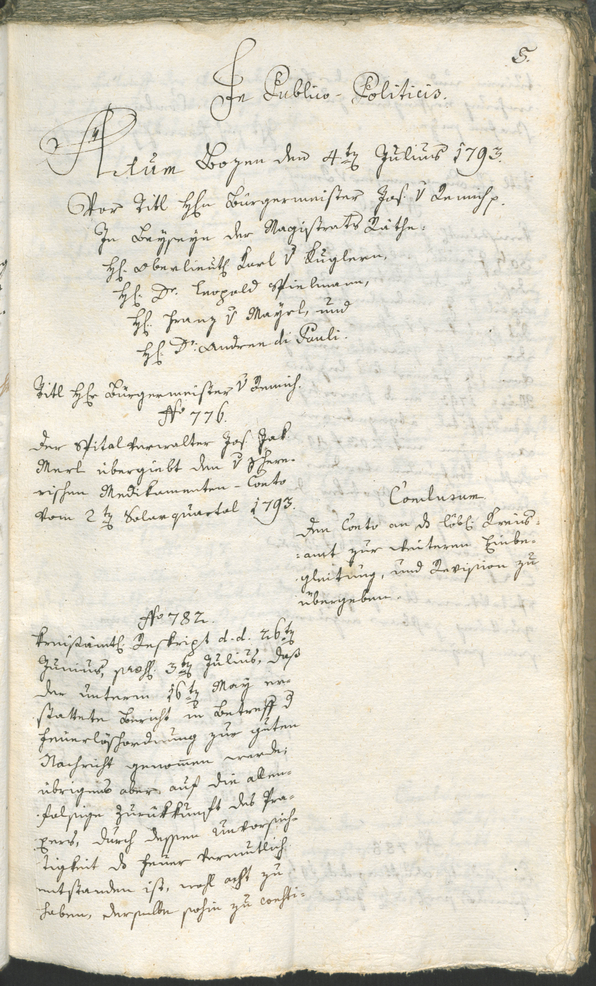 5.
In Publico-Politicis.
Actum Bozen den 4tn Julius 1793.
Vor Titl Hhn Bürgermeister Jos. v
In Beyseyn der Magistrats Räthe.
Hl. Oberlieut. Karl v Kuglern,
Hl. Dr. Leopold Spielmann,
Hl. Franz v Mayrl, und
Hl. Dr. Andree di Pauli.
Titl Hhr Bürgermeister v
No 776.
Der Spitalverwalter Jos. Jak.
Merl übergiebt den v
rischen Medikamenten-Conto
vom 2tn Solarquartal 1793.
Conclusum
Den Conto an ds löbl. Kreis-
amt zur weiteren Einbe-
gleitung, und Revision zu
übergeben.
No 782.
Kreisämtl Reskript d.d. 26tn
Junius, 3tn Julius, daß
der unterm 16tn May er-
stattete Bericht in Betreff d
Feuerlöschordnung zur guten
Nachricht genommen werde;
übrigens aber auf die allen-
falsige Zurükkunft des Pra-
xers, durch dessen Unvorsich-
tigkeit ds Feuer vermutlich
entstanden ist, wohl acht zu
haben, derselbe sohin zu consti-